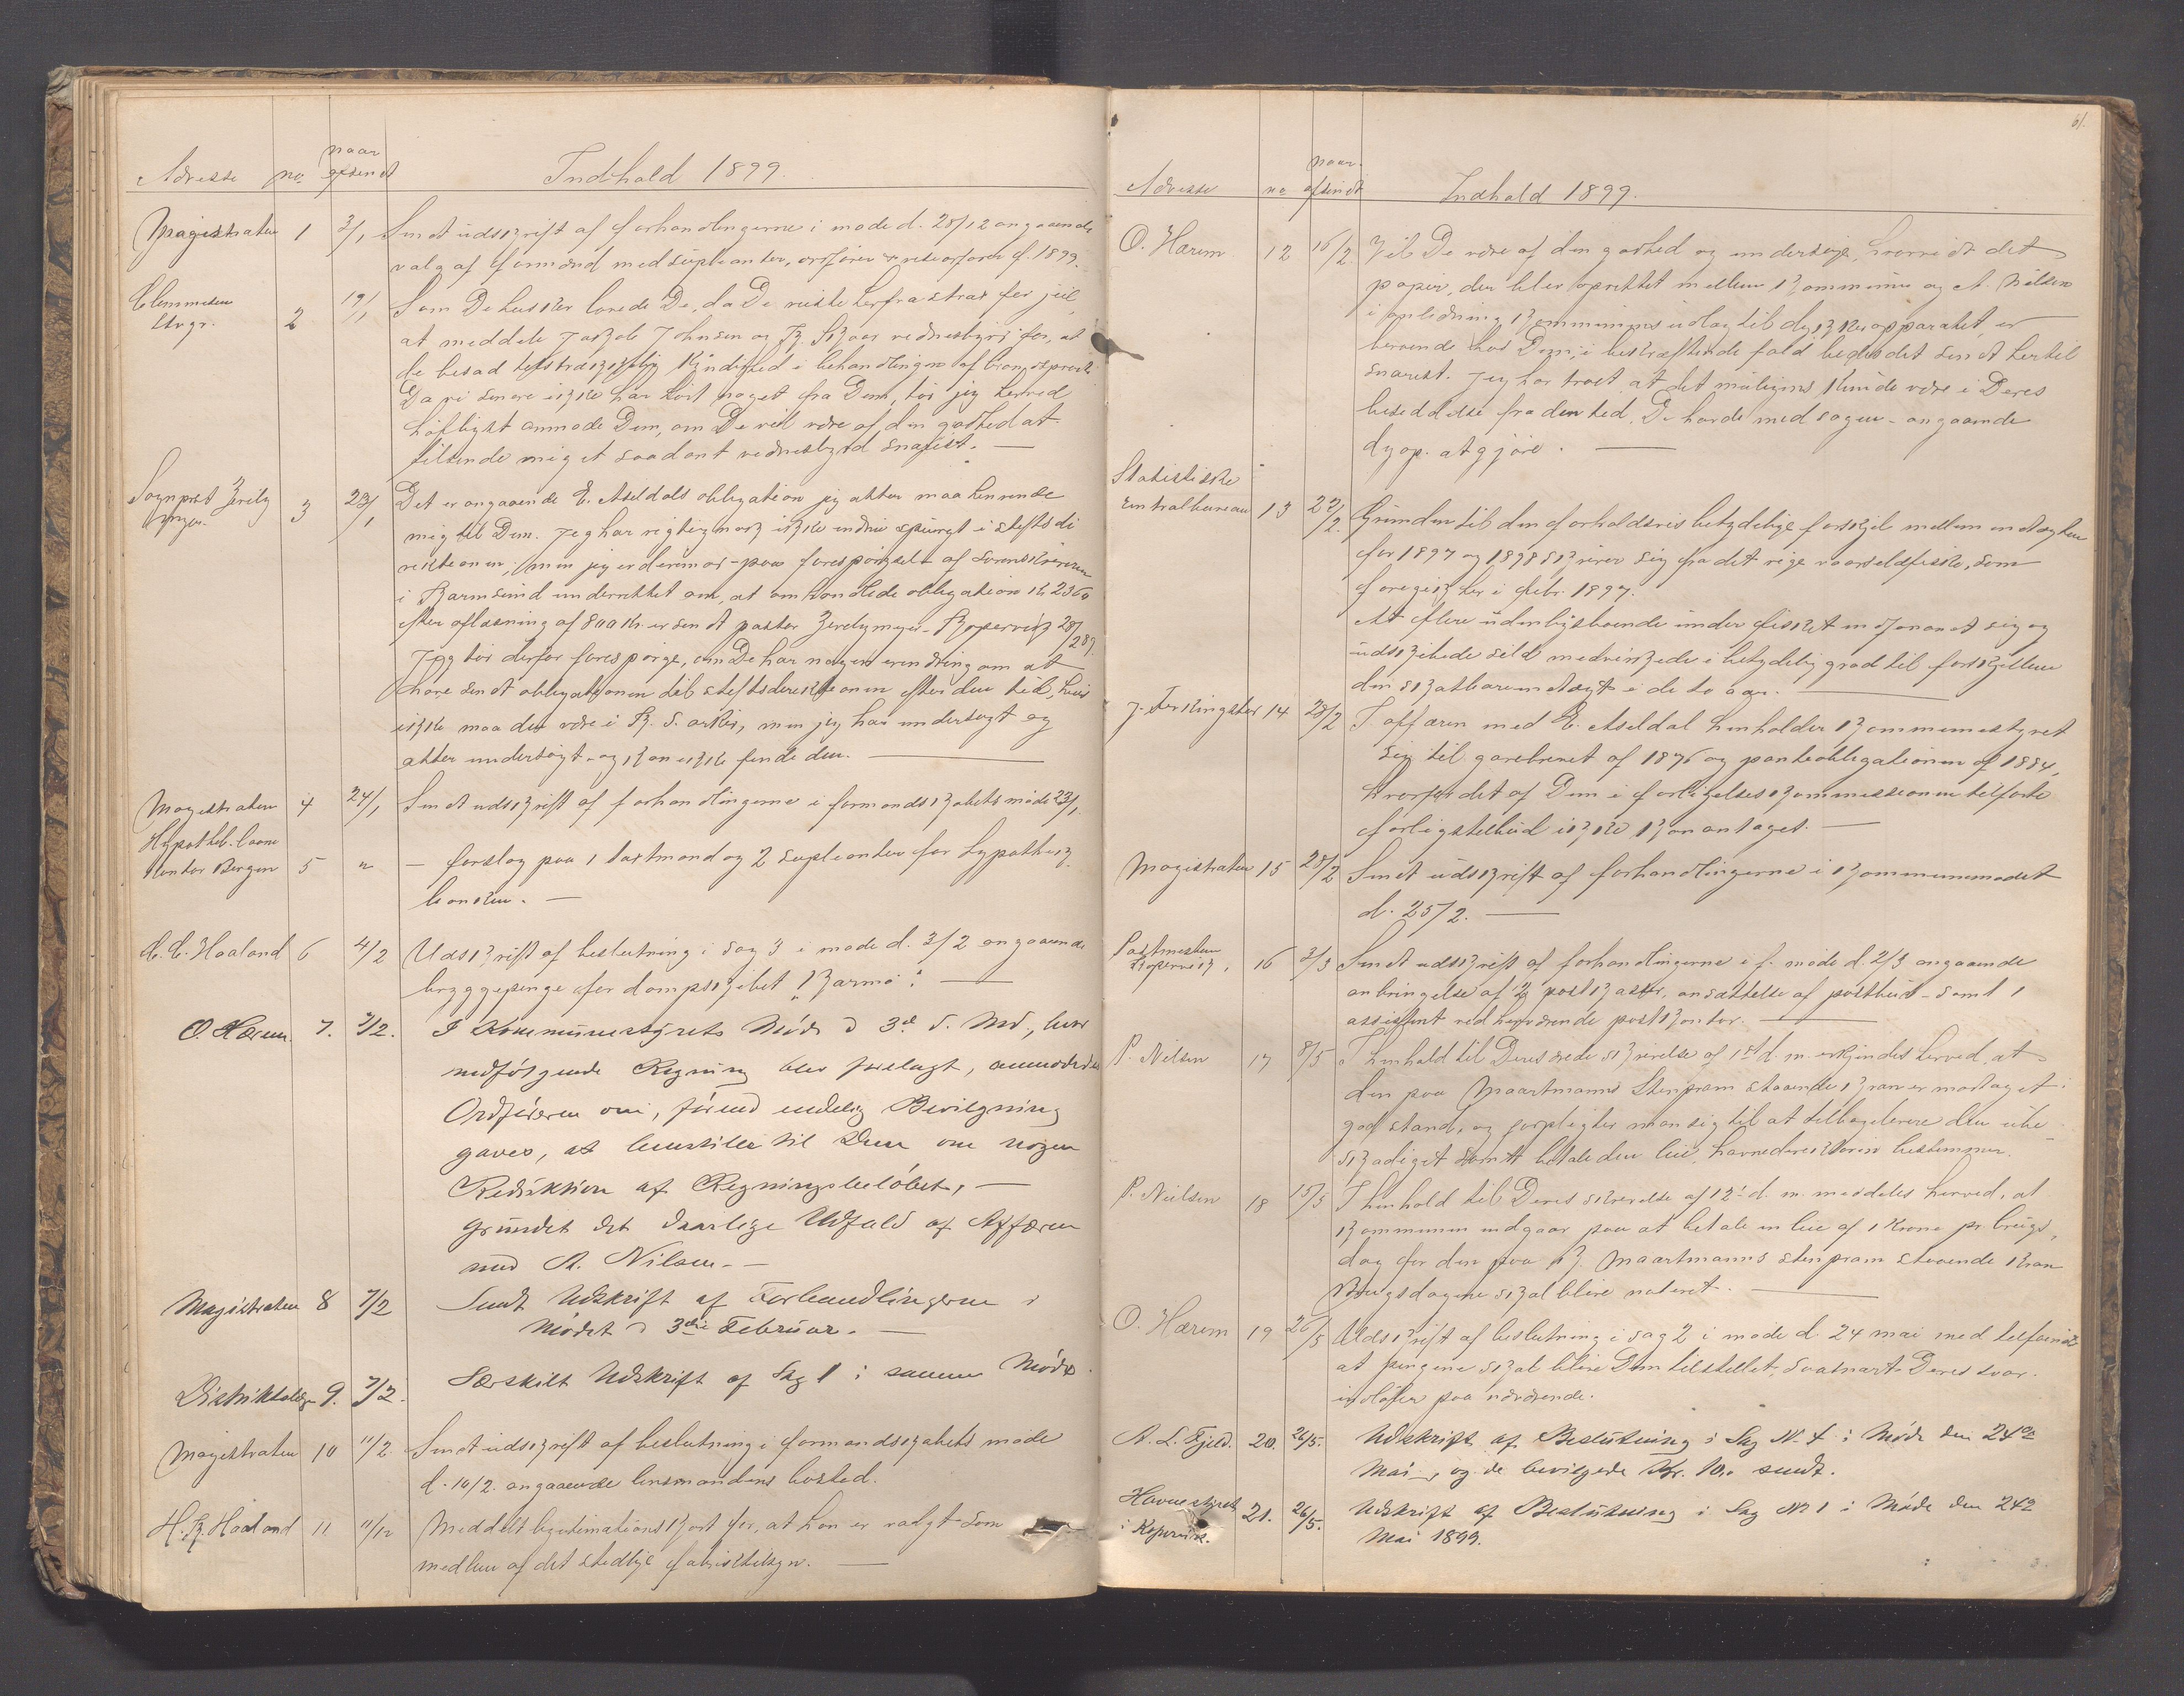 Adresse no. naar afsendt Indhold 1899.
Magistraten 1 3/1 Sendt udskrift af forhandlingerne i møde d. 28/12 angaaende
valg af formænd med supleanter, ordfører & viseorfører f. 1899.
Clemmetsen
2 19/1 Som De husker lovede De, da De reiste herfra strax før jul,
at meddele Jakob Johnsen og K. vidnesbyrd for, at
de besad tilstrækkelig kyndighed i behandlingen af
Da vi senere ikke har hørt noget fra Dem, tør jeg herved
høfligst anmode Dem, om De vil være af den godhed at
tilsende mig et saadant vidnesbyrd snarest. —
Sognprst
3 23/1 Det er angaaende E. Aseldals obligation jeg atter maa henvende
mig til Dem. Jeg har rigtignok ikke endnu spurgt i stiftsdi
rektionen; men jeg er derimod - paa forespørgsel af Sorenskriveren
i Karmsund underrettet om, at omhandlede obligation kr 2360
efter aflæsning af 800 kr. er sendt pastor - Kopervik 28/
Jeg tør derfor forespørge, om De har nogen erindring om at
have sendt obligationen til stiftsdirektionen efter den tid, hvis
ikke maa den være i K. S. arkiv, men jeg har undersøgt og
atter undersøgt - og kan ikke finde den. —
Magistraten 4 24/1 Sendt udskrift af forhandlingerne i formandskabets møde 23/1.
Hypothek. laane
kontor Bergen 5 " — forslag paa 1 taxtmand og 2 supleanter for hypothek
banken. —
C. C. Haaland 6 4/2 Udskrift af beslutning i sag 3 i møde d. 3/2 angaaende
bryggepenge for dampskibet "Karmø". —
O. Hærem. 7. 7/2. I Kommunestyrets Møde d 3d d. Md, hvor
medfølgende Regning blev forelagt, anmodedes
Ordføreren om, førend endelig Bevilgning
gaves, at henstille til Dem om nogen
Reduktion af Regningsbeløbet, —
grundet det daarlige Udfald af Affæren
med A. Nilsen. —
Magistraten 8 7/2 Sendt Udskrift af Forhandlingerne i
Mødet d 3die Februar. —
Distriktslæge 9. 7/2. Særskilt Udskrift af Sag 1 i samme Møde.
Magistraten 10 11/2 Sendt udskrift af beslutning i formandskabets møde
d. 10/2. angaaende lensmandens bosted.
H. K. Haaland 11 11/12 Meddelt legitimationskort for, at han er valgt som
medlem af det stedlige fabriktilsyn. —
61.
Adresse no naar afsendt Indhold 1899.
O. Hærem 12 16/2. Vil De være af den godhed og undersøge, hvorvidt det
papir, der blev oprettet mellem kommune og A. Nilsen
i anledning kommunens udlæg til dykkerapparatet, er
beroende hos Dem; i bekræftende fald bedes det sendt hertil
snarest. Jeg har troet at det muligens kunde være i Deres
besiddelse fra den tid, De havde med sagen - angaaende
dyap. at gjøre. —
Statistiske
Centralbureau 13 22/2. Grunden til den forholdsvis betydelige forskjel mellem indtægten
for 1897 og 1898 skriver sig fra det rige vaarsildfiske, som
foregik her i febr. 1897.
At flere udenbysboende under fisket indfandt sig og
udskibede sild medvirkede i betydelig grad til forskjellen
den skatbare indtægt i de to aar. —
J. 14 28/2 I affæren med E. Aseldal henholder kommunestyret
sig til gavebrevet af 1876 og panteobligationen af 1884,
hvorfor det af Dem i forligelseskommissionen tilførte
forligstilbud ikke kan antaget. —
Magistraten 15 28/2 Sendt udskrift af forhandlingerne i kommunemødet
d. 25/2. —
Postmesteren
Kopervik, 16 3/3 Sendt udskrift af forhandlingerne i f. møde d. 2/3 angaaende
anbringelse af 2 postkasser, ansættelse af postbud - samt 1
assistent ved herværende postkontor. —
P. Nilsen 17 8/5 I henhold til Deres ærede skrivelse af 1st d. m. erkjendes herved, at
den paa Maartmanns Stenpram staaende kran er modtaget i
god stand, og forpligter man sig til at tilbagelevere den ube
skadiget samt betale den leie, havnedirektøren bestemmer.
P. Nielsen 18 15/5 I henhold til Deres skrivelse af 12' d. m. meddeles herved, at
kommunen indgaar paa at betale en leie af 1 krone pr. brugs,
dag for den paa K. Maartmanns stenpram staaende kran
Brugsdagene skal blive noteret. —
O. Hærem 19 26/5 Udskrift af beslutning i sag 2 i møde d. 24 mai med tilføiende
at pengene skal blive Dem tilstillet, saasnart Deres svar
indløber paa nærværende.
A. L. Fjeld. 20. 26/5. Udskrift af Beslutning i Sag N. 4 i Møde den 24de
Mai, og de bevilgede Kr. 10.. sendt.
Havnestyret
i Kopervik. 21. 26/5. Udskrift af Beslutning i Sag No 1 i Møde den 24de
Mai 1899.